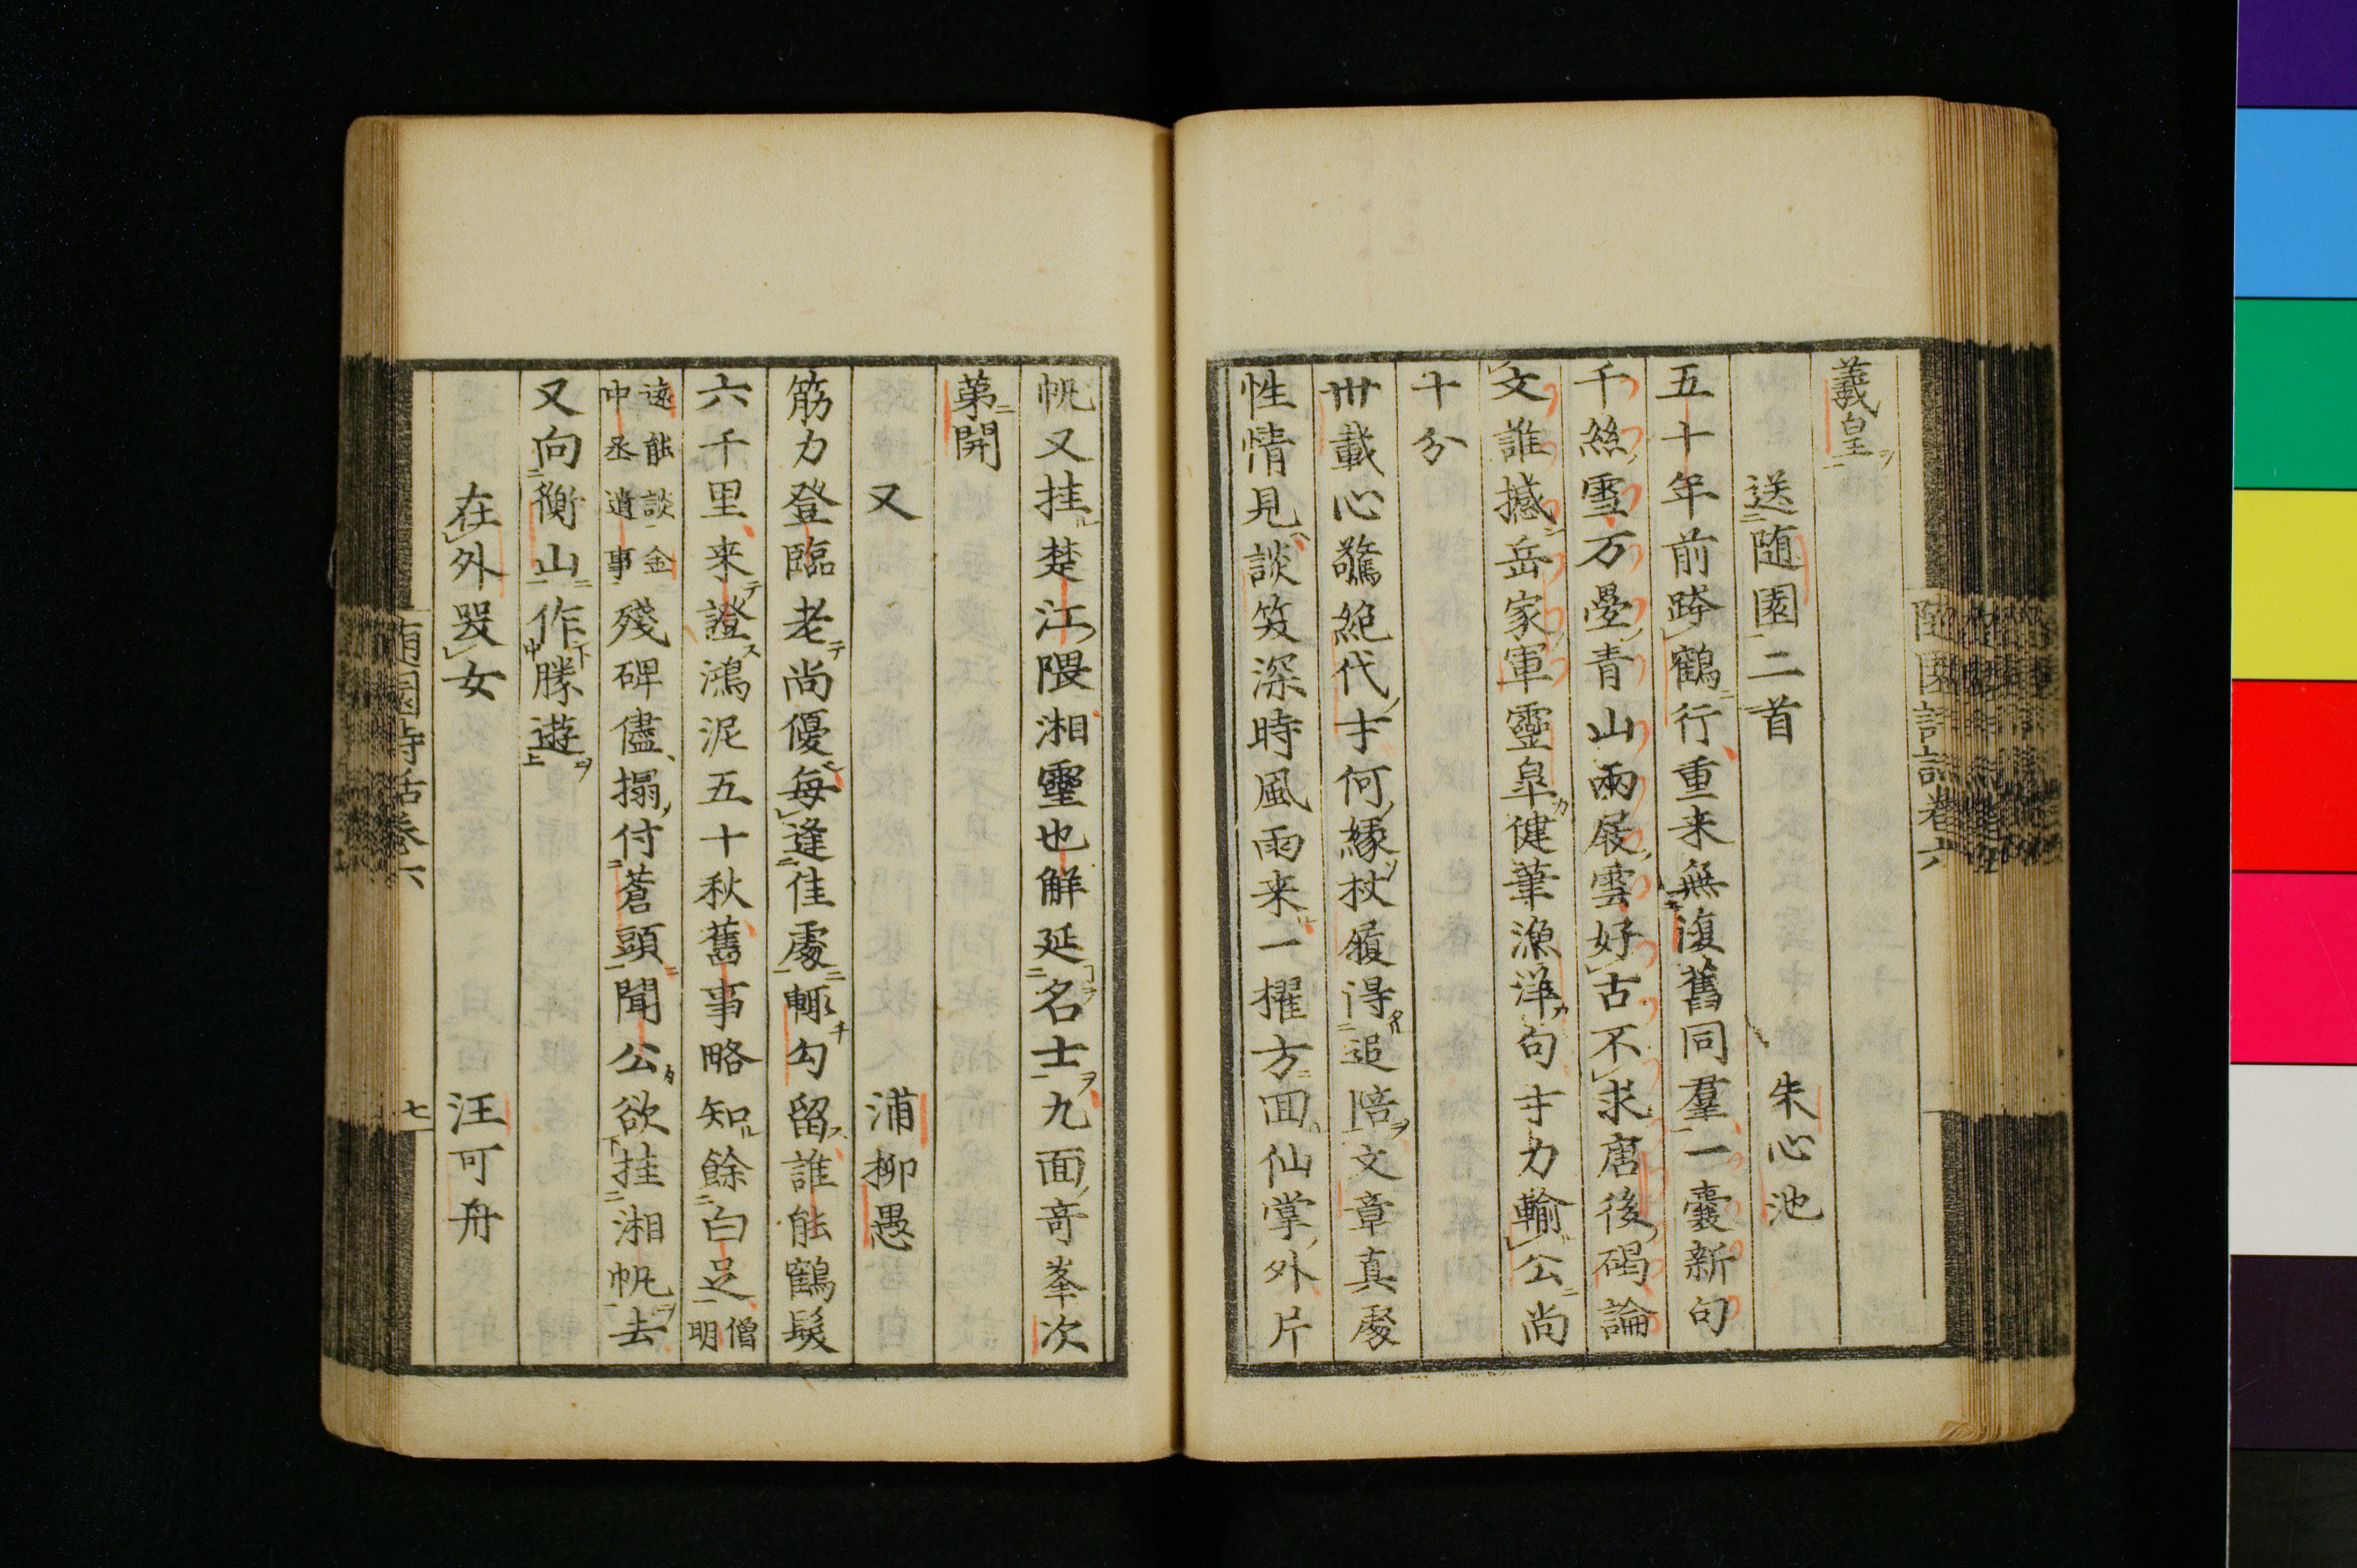 義皇
送随園二首 朱心池
五十年前跨鶴行重来無復舊同羣一囊新句
千絲雪万疊青山兩屐雲好古不求唐後碣論
文誰撼岳家軍靈皐健筆漁洋句才力輸公尚
十分
卅載心驚絶代才何縁杖履得追陪文章真處
性情見談笑深時風雨来一擢方回仙掌外片
帆又挂楚江隈湘靈也解延名士九面奇峯次
第開
又 浦柳愚
筋力登臨老尚優每逢佳處輙勾留誰能鶴髮
六千里来證鴻泥五十秋舊事略知餘白足僧明
遠能談金中丞遺事殘碑儘搨付蒼頭聞公欲挂湘帆去
又向衡山作勝遊
在外哭女 汪可舟
随園詩話卷六
七